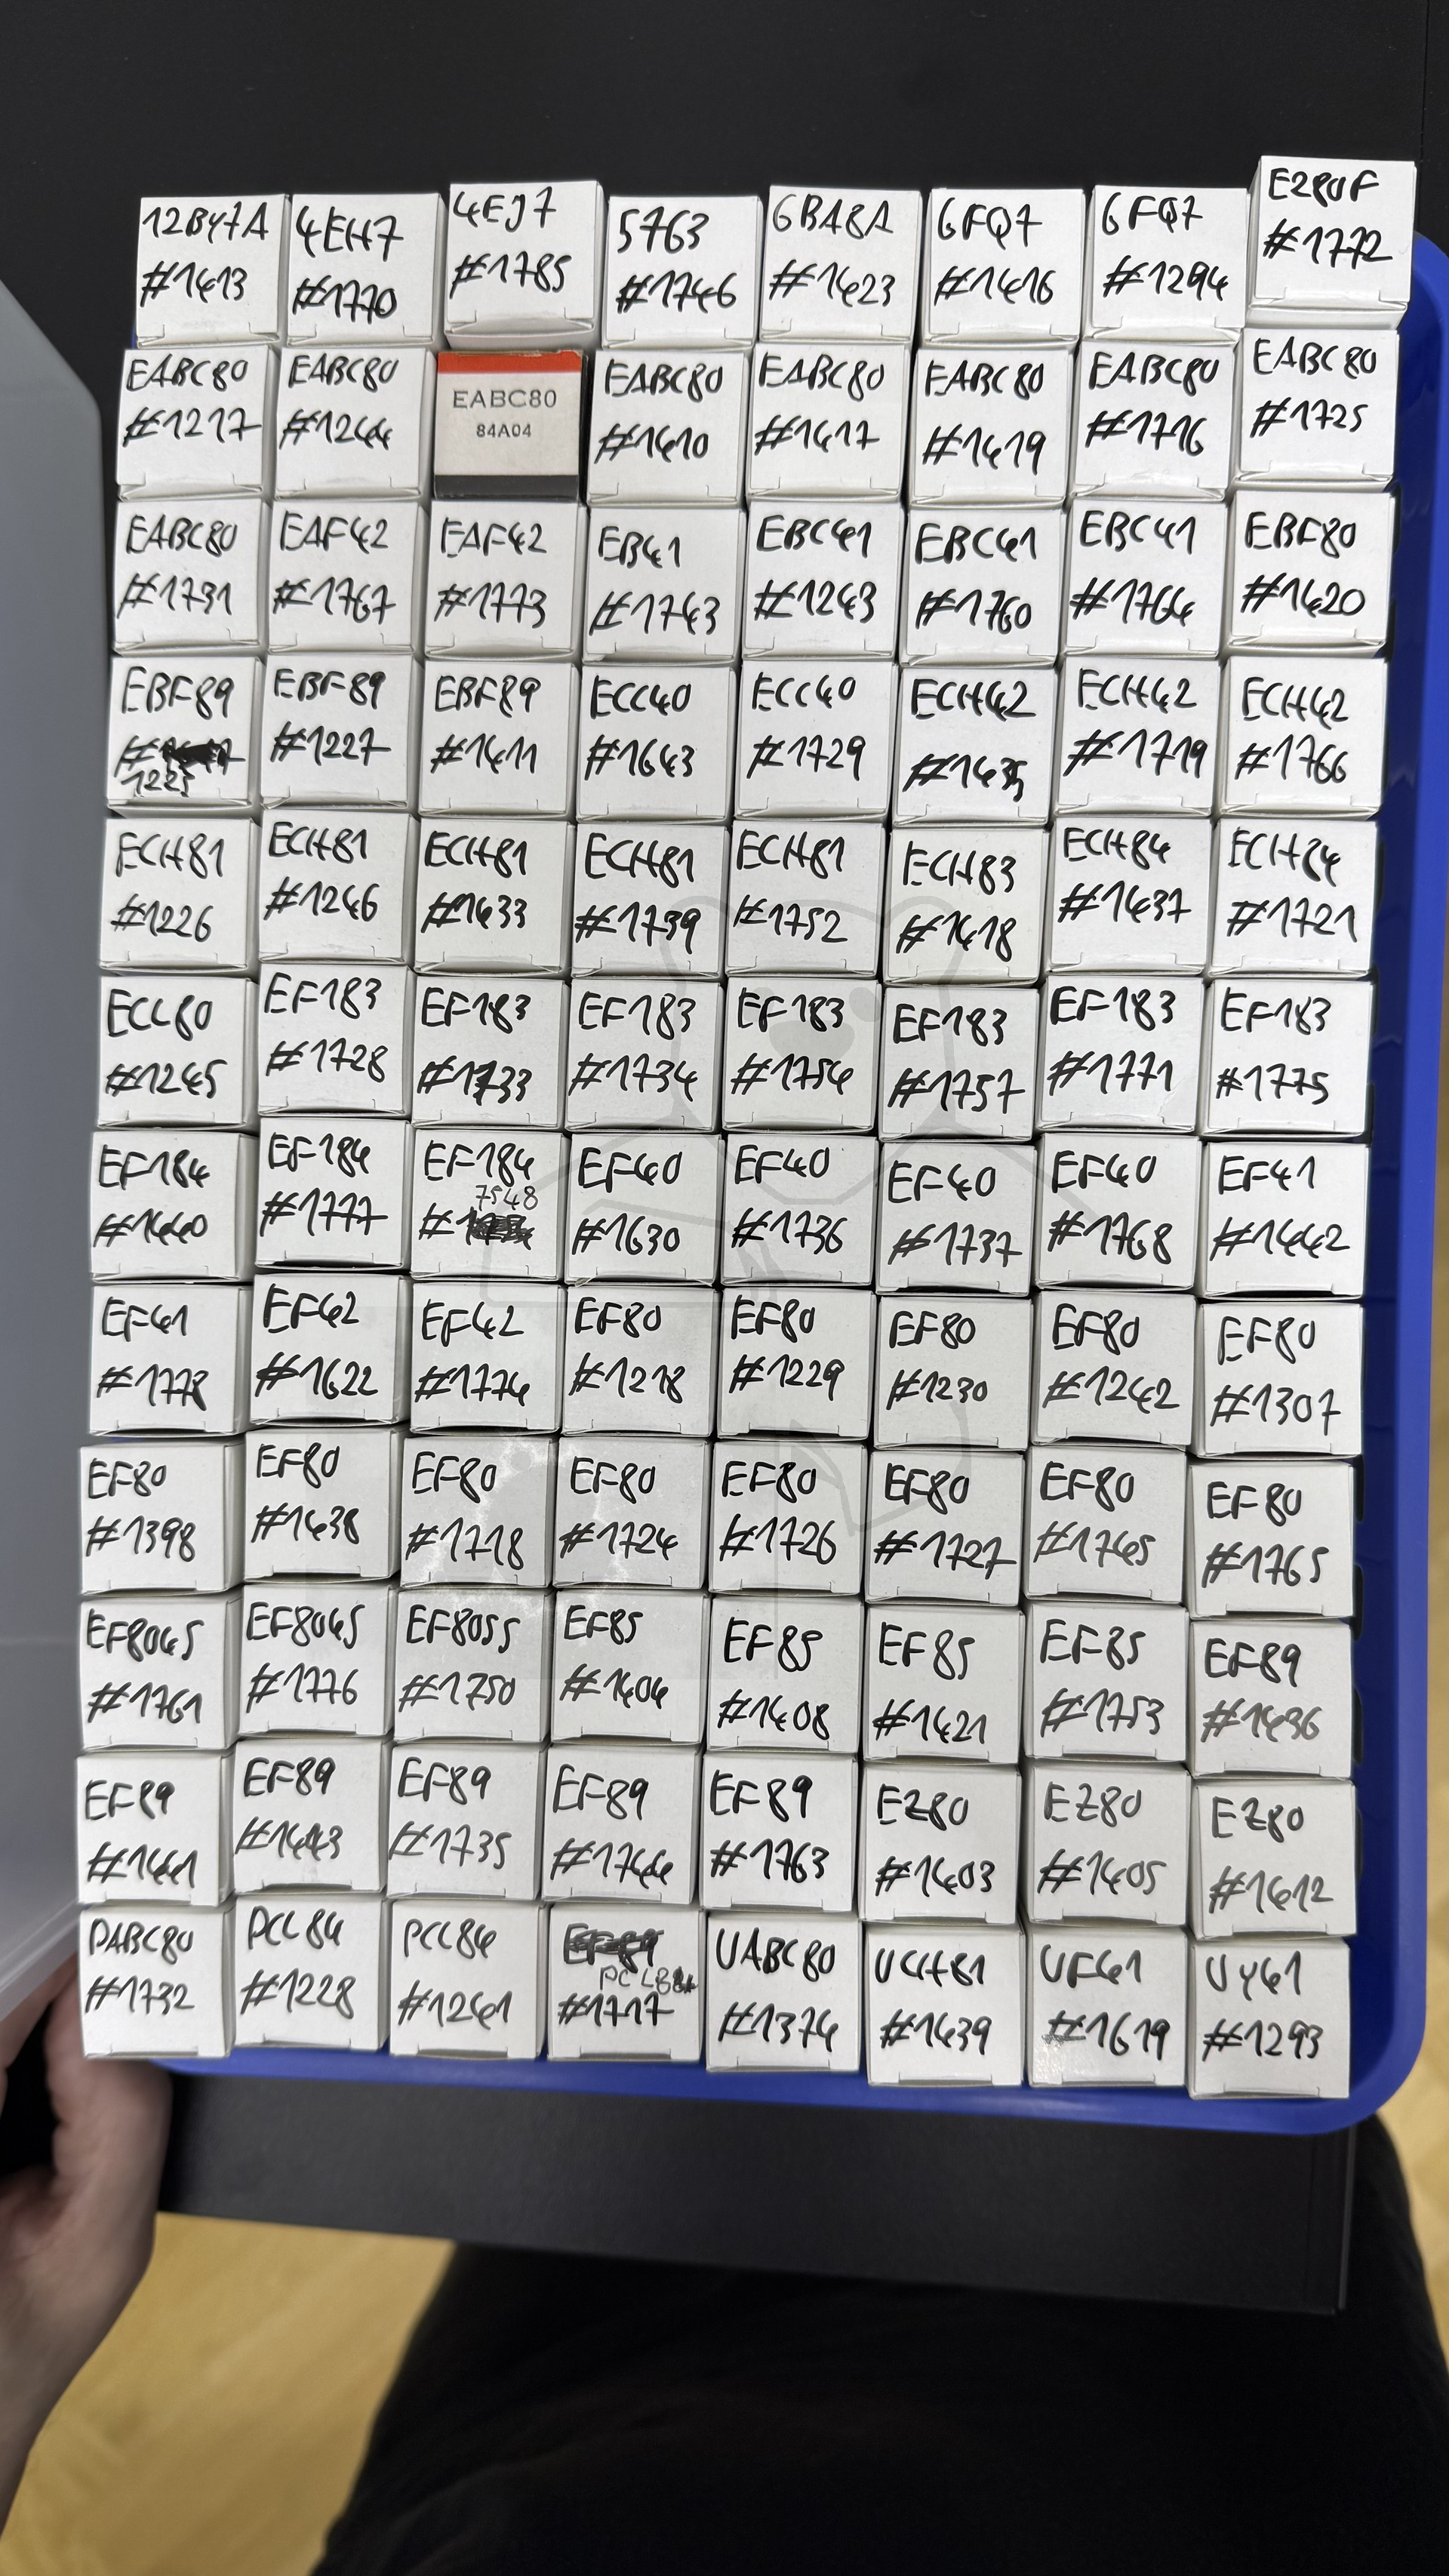 12BY7A
#1413
4EH7
#1770
4EJ7
#1785
5763
#1746
6BA8A
#1423
6FQ7
#1416
6FQ7
#1294
E280F
#1772
EABC80
#1217
EABC80
#1244
EABC80
84A04
EABC80
#1410
EABC80
#1417
EABC80
#1419
EABC80
#1716
EABC80
#1725
EABC80
#1731
EAF42
#1767
EAF42
#1773
EB41
#1743
EBC41
#1243
EBC41
#1760
EBC41
#1764
EBF80
#1420
EBF89
#
1225
EBF89
#1227
EBF89
#1411
ECC40
#1643
ECC40
#1729
ECH42
#1435
ECH42
#1719
ECH42
#1766
ECH81
#1226
ECH81
#1246
ECH81
#1433
ECH81
#1739
ECH81
#1752
ECH83
#1418
ECH84
#1437
ECH84
#1721
ECL80
#1245
EF183
#1728
EF183
#1733
EF183
#1734
EF183
#1754
EF183
#1757
EF183
#1771
EF183
#1775
EF184
#1440
EF184
#1777
EF184
7548
#
EF40
#1630
EF40
#1736
EF40
#1737
EF40
#1768
EF41
#1442
EF41
#1778
EF42
#1622
EF42
#1774
EF80
#1218
EF80
#1229
EF80
#1230
EF80
#1242
EF80
#1307
EF80
#1398
EF80
#1438
EF80
#1718
EF80
#1724
EF80
#1726
EF80
#1727
EF80
#1745
EF80
#1765
EF8045
#1761
EF8045
#1776
EF8055
#1750
EF85
#1404
EF85
#1408
EF85
#1421
EF85
#1753
EF89
#1436
EF89
#1441
EF89
#1443
EF89
#1735
EF89
#1744
EF89
#1763
EZ80
#1403
EZ80
#1405
EZ80
#1412
PABC80
#1732
PCL84
#1228
PCL84
#1241
EF89
#1717
UABC80
#1374
UCH81
#1439
UF41
#1619
UY41
#1293